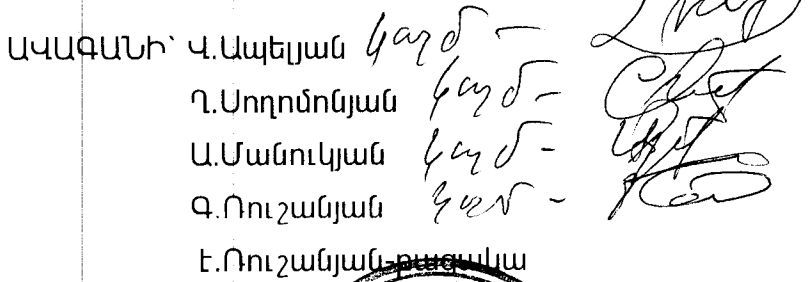 ԱՎԱԳԱՆԻ՝ Վ.Ապելյան կողմ –
Ղ.Սողոմոնյան կողմ –
Ա.Մանուկյան կողմ –
Գ.Ռուշանյան կողմ –
Է.Ռուշանյան-բացակա